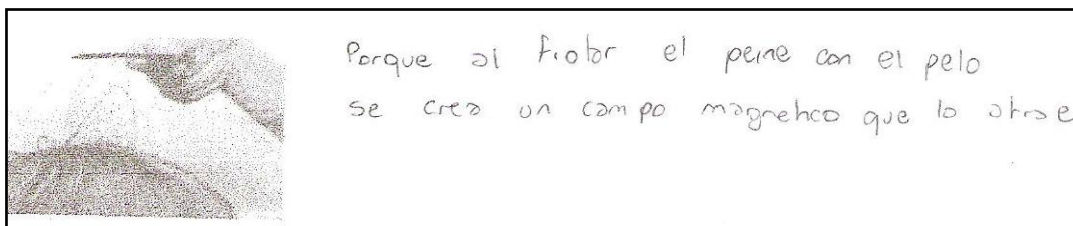 Porque al frotar el peine con el pelo
se crea un campo magnetico que lo atrae